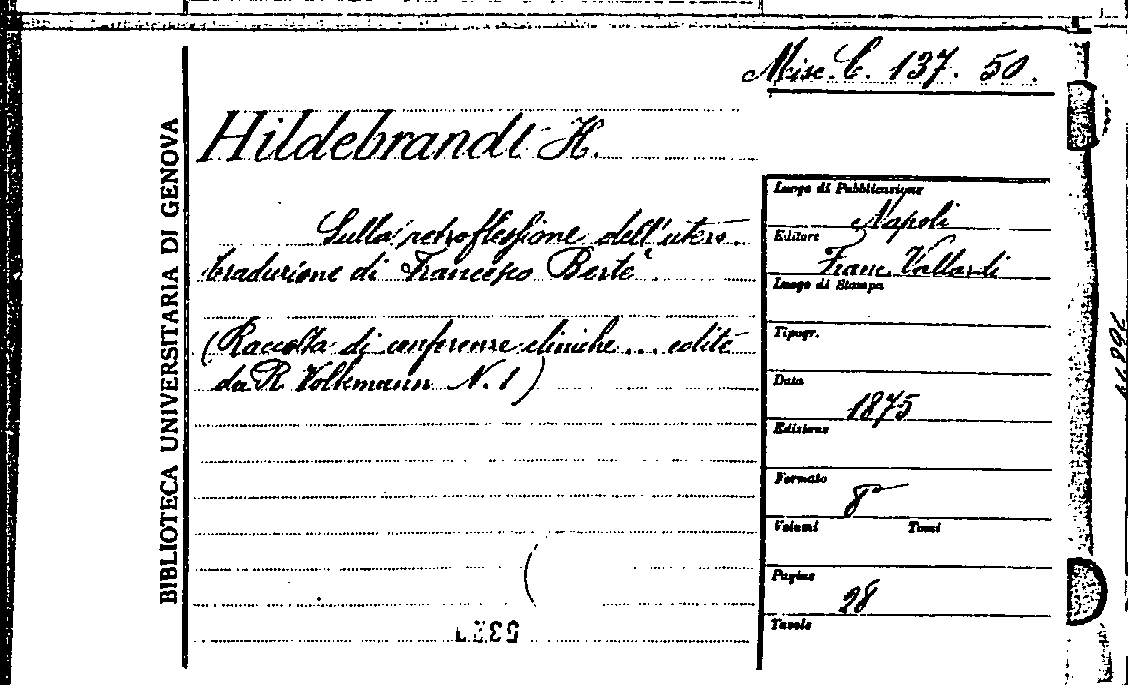 Misc. C. 137. 50.
BIBLIOTECA UNIVERSITARIA DI GENOVA
Hildebrandt H.
Sulla retroflessione dell'utero.
traduzione di Francesco Bertè.
(Raccolta di conferenze cliniche ... edite
da R. Volkmann N. 1)
Luogo di Pubblicazione
Napoli
Editore
Franc. Vallardi
Luogo di Stampa
Tipogr.
Data
1875
Edizione
Formato
8°
Volumi Tomi
Pagine
28
Tavole